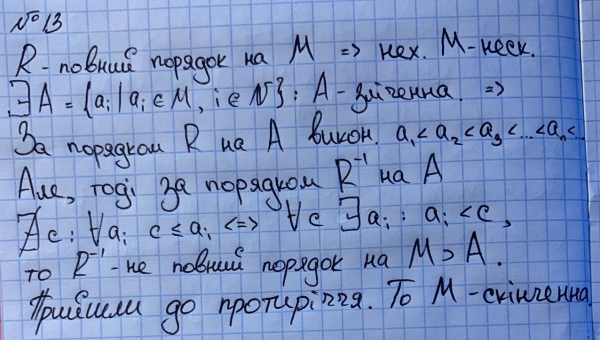 № 13
R - повний порядок на M => нех. M - неск.
∃ A = {aᵢ | aᵢ ∈ M, i ∈ N} : A - зліченна. =>
За порядком R на A викон. a₁ < a₂ < a₃ < ... < aₙ < ...
Але, тоді за порядком R⁻¹ на A
∄ c : ∀ aᵢ c ≤ aᵢ <=> ∀ c ∃ aᵢ : aᵢ < c,
то R⁻¹ - не повний порядок на M ⊃ A.
Прийшли до протиріччя. То M - скінченна.